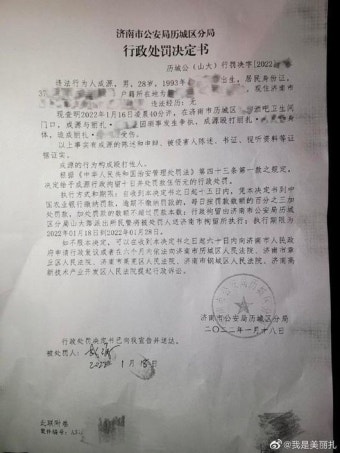 济南市公安局历城区分局
行政处罚决定书
历城公(山大)行罚决字[2022
违法行为人成源,男,28岁,1993年 出生,居民身份证,
37 户籍所在地为 现住济南市
违法经历:无
现查明2022年1月16日凌晨40分许,在济南市历城区 酒吧卫生间
门口,成源与丽扎· 因琐事发生争执,成源殴打丽扎·
体,造成丽扎· 受伤。
以上事实有成源的陈述和申辩、被侵害人陈述、书证、视听资料等证
据证实。
成源的行为构成殴打他人。
根据《中华人民共和国治安管理处罚法》第四十三条第一款之规定,
决定给予成源行政拘留十日并处罚款伍佰元的行政处罚。
执行方式和期限:自收到本决定书之日起十五日内,凭本决定书到中
国农业银行缴纳罚款,逾期不缴纳罚款的,每日按罚款数额的百分之三加
处罚款,加处罚款的数额不超过罚款本数;行政拘留由济南市公安局历城
区分局山大路派出所民警将被处罚人送济南市拘留所执行,执行期限为
2022年01月18日到2022年01月28日。
如不服本决定,可以在收到本决定书之日起六十日内向济南市人民政
府申请行政复议或者在六个月内依法向济南市历城区人民法院、济南市章
丘区人民法院、济南市莱芜区人民法院、济南市钢城区人民法院、济南高
新技术产业开发区人民法院提起行政诉讼。
济南市公安局历城区分局
二〇二二年一月十八日
行政处罚决定书已向我宣告并送达。
被处罚人:
2022年1月18日
此联附卷
案件编号:A37
@我是美丽扎